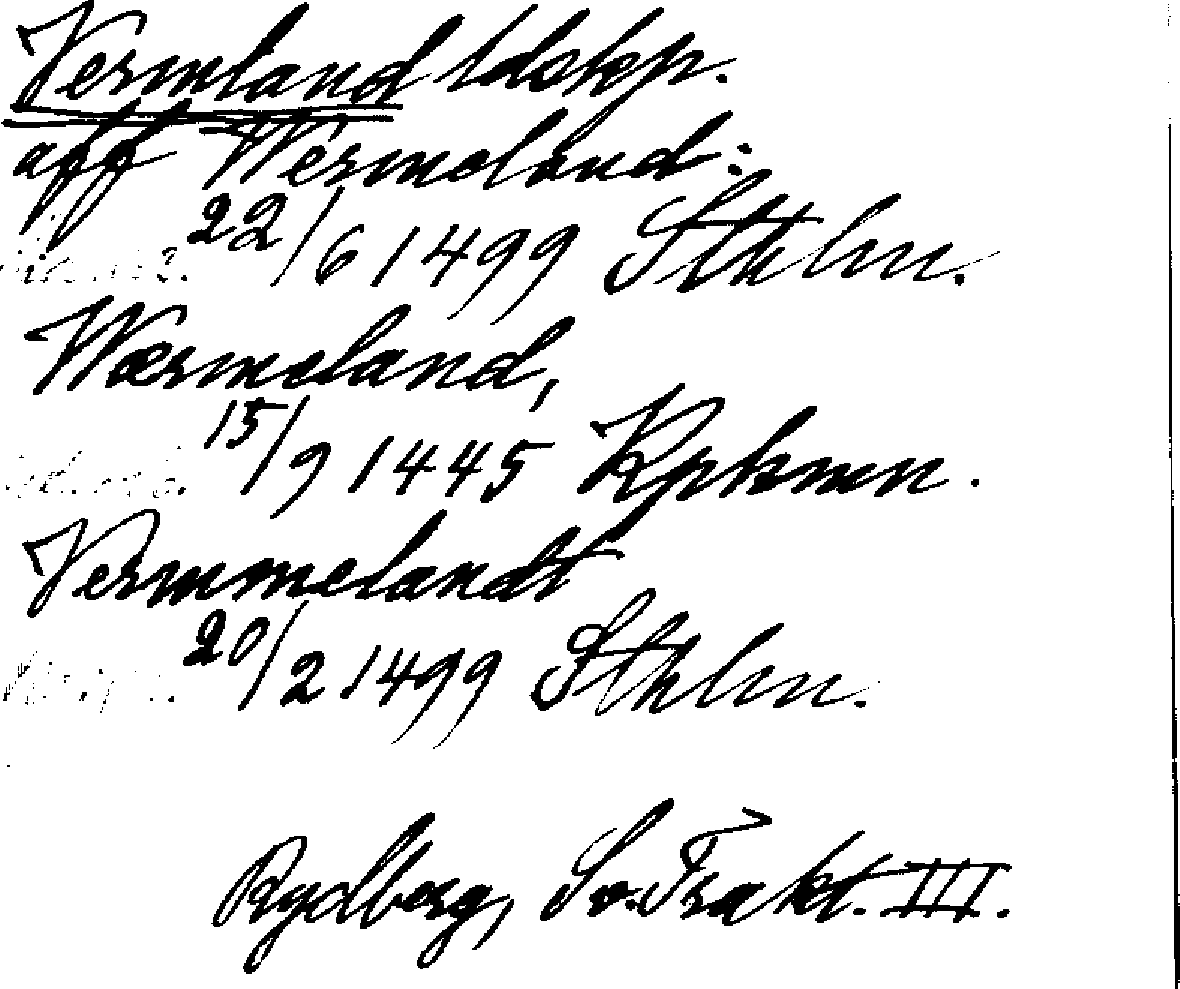 Vermland ldskp.
aff Wermeland:
22/6 1499 Sthlm.
Wærmeland,
15/9 1445 Kphmn.
Vermmelandt
20/2 1499 Sthlm.
Rydberg, Sv. Trakt. III.